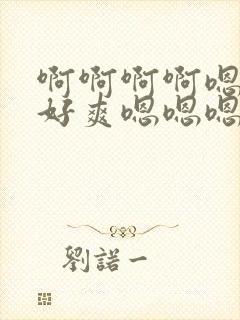 啊啊啊啊嗯
好爽嗯嗯嗯
劉諾一